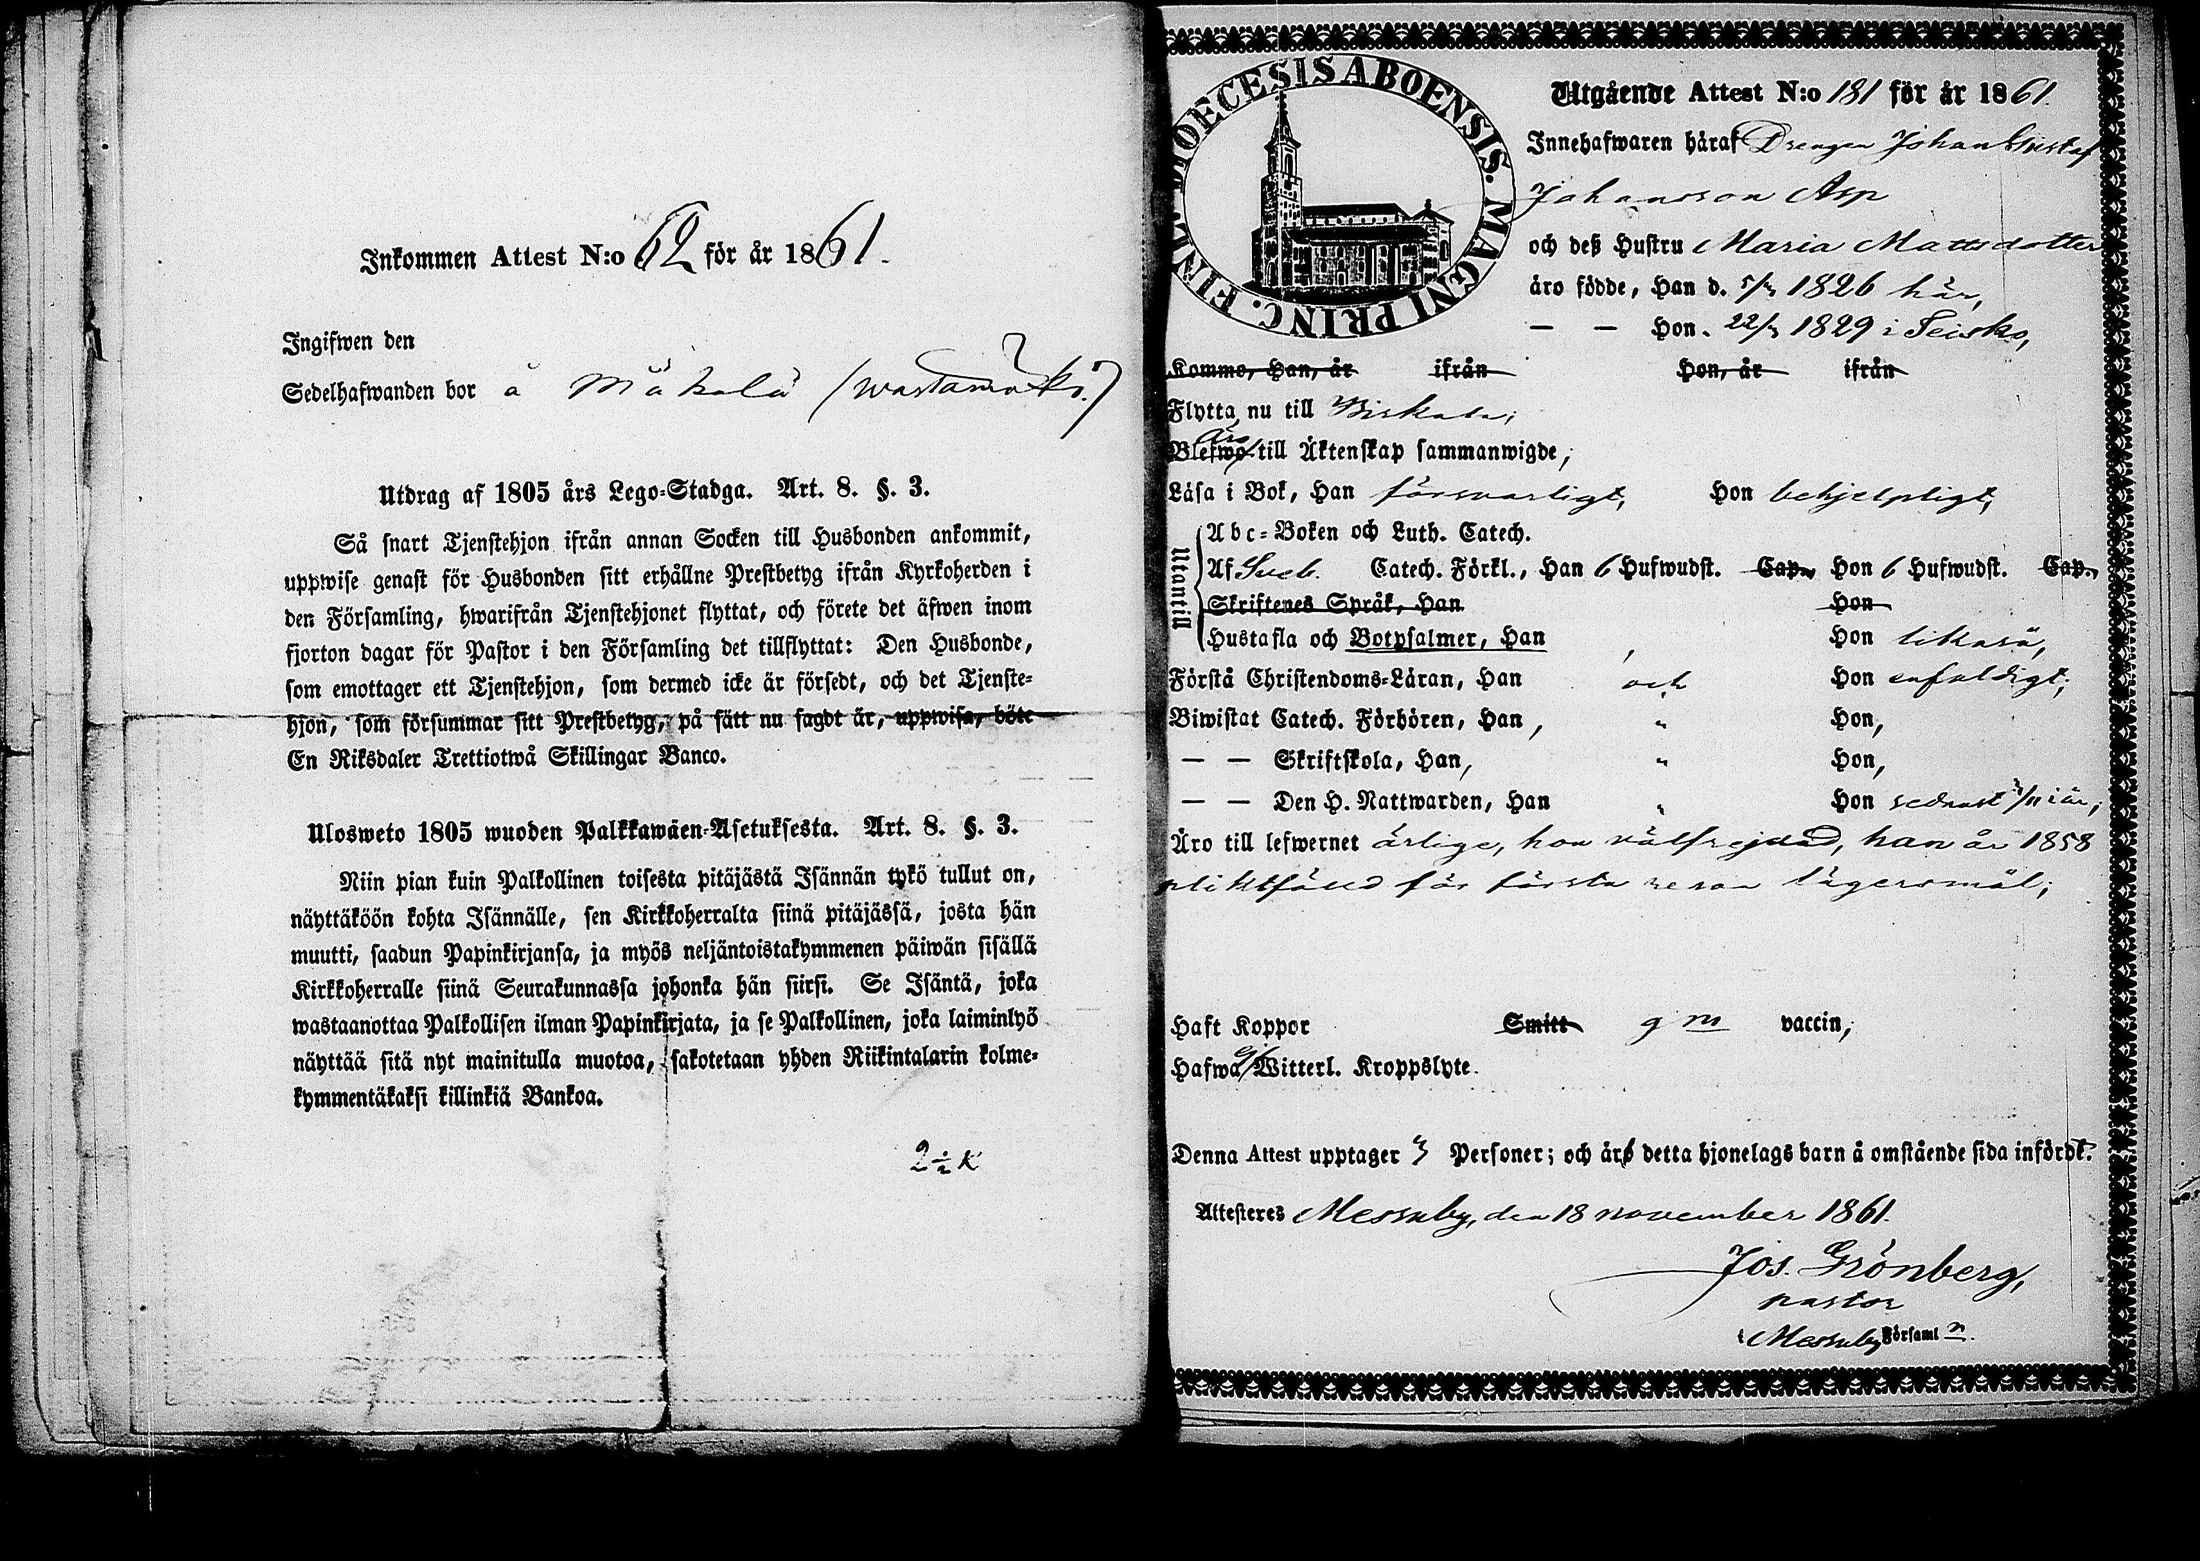 Inkommen Attest N:o 62 för år 1861.
Ingifwen den
Sedelhafwanden bor å Mäkelä
Utdrag af 1805 års Lego-Stadga. Art. 8. §. 3.
Så snart Tjenstehjon ifrån annan Socken till Husbonden ankommit,
uppwise genast för Husbonden sitt erhållne Prestbetyg ifrån Kyrkoherden i
den Församling, hwarifrån Tjenstehjonet flyttat, och förete det äfwen inom
fjorton dagar för Pastor i den Församling det tillflyttat: Den Husbonde,
som emottager ett Tjenstehjon, som dermed icke är försedt, och det Tjenste-
hjon, som försummar sitt Prestbetyg, på sätt nu sagdt är, uppwisa, böte
En Riksdaler Trettiotwå Skillingar Banco.
Ulosweto 1805 wuoden Palkkawäen-Asetuksesta. Art. 8. §. 3.
Niin pian kuin Palkollinen toisesta pitäjästä Isännän tykö tullut on,
näyttäköön kohta Isännälle, sen Kirkkoherralta siinä pitäjässä, josta hän
muutti, saadun Papinkirjansa, ja myös neljäntoistakymmenen päiwän sisällä
Kirkkoherralle siinä Seurakunnassa johonka hän siirsi. Se Isäntä, joka
wastaanottaa Palkollisen ilman Papinkirjata, ja se Palkollinen, joka laiminlyö
näyttää sitä nyt mainitulla muotoa, sakotetaan yhden Riikintalarin kolme-
kymmentäkaksi killinkiä Bankoa.
2½ K
DIOECESIS ABOENSIS. MAGNI PRINC. FINL.
Utgående Attest N:o 181 för år 1861.
Innehafwaren häraf Drengen Johan Gustaf
Johansson Asp
och deß Hustru Maria Mattsdotter
äro födde, Han d. 1826 här,
— — Hon. 1829 i Teisko,
Kommo, Han, år ifrån Hon, år ifrån
Flytta nu till Birkala;
Blefwo äro till Äktenskap sammanwigde;
Läsa i Bok, Han försvarligt, Hon behjelpligt,
Utantill
Abc-Boken och Luth. Catech.
Af Sveb. Catech. Förkl., Han 6 Hufwudst. Cap., Hon 6 Hufwudst. Cap.,
Skriftenes Språk, Han Hon
Hustafla och Botpsalmer, Han , Hon likaså,
Förstå Christendoms-Läran, Han och Hon enfaldigt;
Biwistat Catech. Förhören, Han, " Hon,
— — Skriftskola, Han, " Hon,
— — Den H. Nattwarden, Han " Hon sednast i år;
Äro till lefwernet ärlige, hon välfrejdad, han år 1858
pliktfälld för första resan lägersmål;
Haft Koppor Smitt g m vaccin,
Hafwa ej Witterl. Kroppslyte.
Denna Attest upptager 3 Personer; och äro detta hjonelags barn å omstående sida införde.
Attesteres Messuby, den 18 november 1861.
Jos. Grönberg,
pastor
i Messuby Församl n.